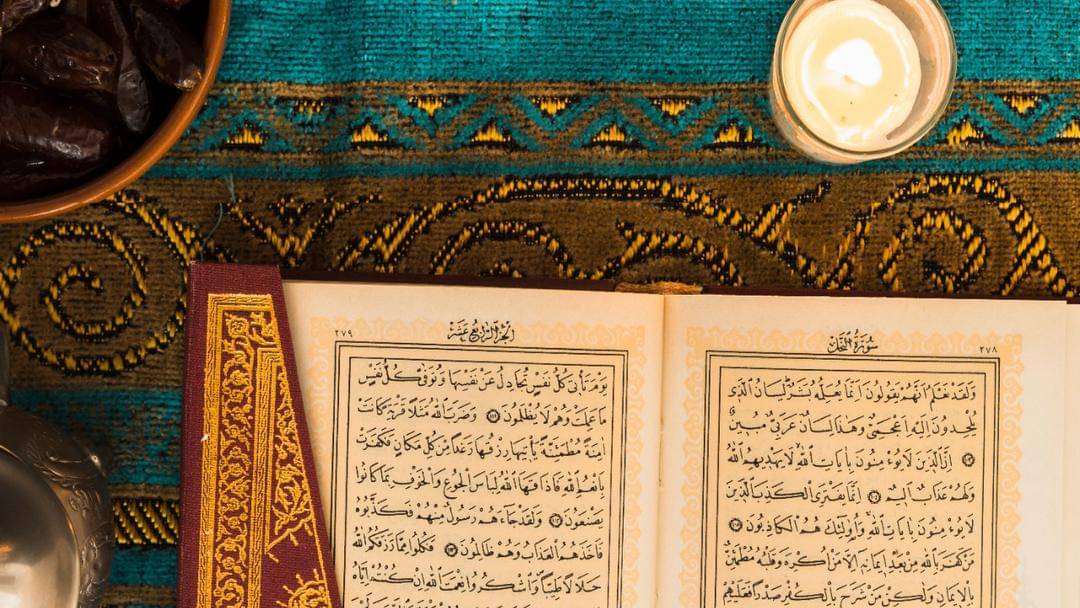 سُورَةُ النَّحْلِ ٢٧٨
وَلَقَدْ نَعْلَمُ أَنَّهُمْ يَقُولُونَ إِنَّمَا يُعَلِّمُهُ بَشَرٌ لِسَانُ الَّذِي
يُلْحِدُونَ إِلَيْهِ أَعْجَمِيٌّ وَهَٰذَا لِسَانٌ عَرَبِيٌّ مُبِينٌ
١٠٣ إِنَّ الَّذِينَ لَا يُؤْمِنُونَ بِآيَاتِ اللَّهِ لَا يَهْدِيهِمُ اللَّهُ
وَلَهُمْ عَذَابٌ أَلِيمٌ ١٠٤ إِنَّمَا يَفْتَرِي الْكَذِبَ الَّذِينَ
لَا يُؤْمِنُونَ بِآيَاتِ اللَّهِ وَأُولَٰئِكَ هُمُ الْكَاذِبُونَ ١٠٥
مَنْ كَفَرَ بِاللَّهِ مِنْ بَعْدِ إِيمَانِهِ إِلَّا مَنْ أُكْرِهَ وَقَلْبُهُ مُطْمَئِنٌّ
بِالْإِيمَانِ وَلَٰكِنْ مَنْ شَرَحَ بِالْكُفْرِ صَدْرًا فَعَلَيْهِمْ
الْجُزْءُ الرَّابِعَ عَشَرَ ٢٧٩
يَوْمَ تَأْتِي كُلُّ نَفْسٍ تُجَادِلُ عَنْ نَفْسِهَا وَتُوَفَّىٰ كُلُّ نَفْسٍ
مَا عَمِلَتْ وَهُمْ لَا يُظْلَمُونَ ١١١ وَضَرَبَ اللَّهُ مَثَلًا قَرْيَةً كَانَتْ
آمِنَةً مُطْمَئِنَّةً يَأْتِيهَا رِزْقُهَا رَغَدًا مِنْ كُلِّ مَكَانٍ فَكَفَرَتْ
بِأَنْعُمِ اللَّهِ فَأَذَاقَهَا اللَّهُ لِبَاسَ الْجُوعِ وَالْخَوْفِ بِمَا كَانُوا
يَصْنَعُونَ ١١٢ وَلَقَدْ جَاءَهُمْ رَسُولٌ مِنْهُمْ فَكَذَّبُوهُ
فَأَخَذَهُمُ الْعَذَابُ وَهُمْ ظَالِمُونَ ١١٣ فَكُلُوا مِمَّا رَزَقَكُمُ اللَّهُ
حَلَالًا طَيِّبًا وَاشْكُرُوا نِعْمَتَ اللَّهِ إِنْ كُنْتُمْ إِيَّاهُ